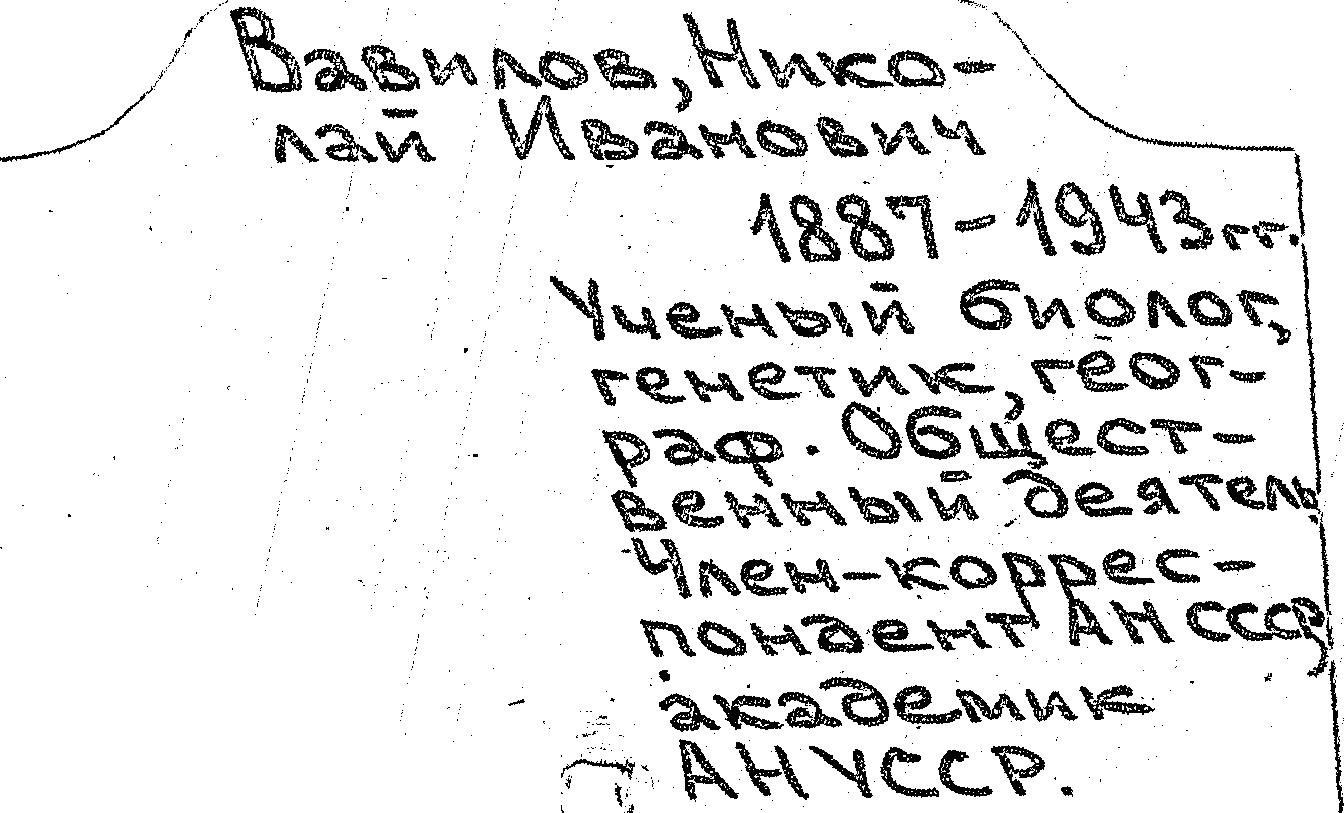 Вавилов, Нико-
лай Иванович
1887-1943гг.
Ученый биолог,
генетик, геог-
раф. Общест-
венный деятель.
Член-коррес-
пондент АН СССР,
академик
АН УССР.